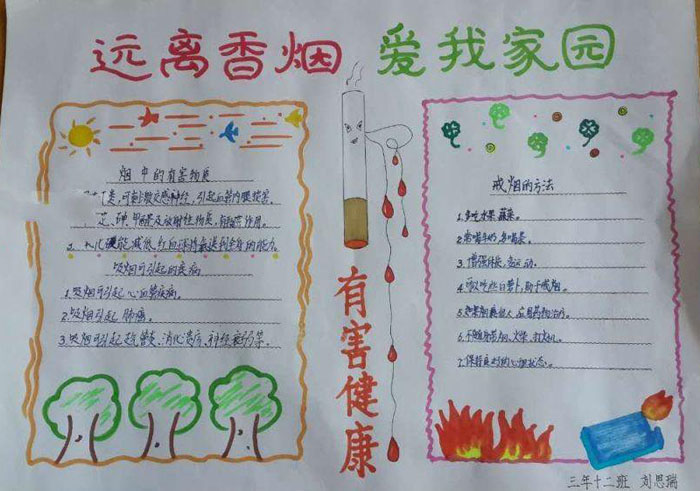 远离香烟 爱我家园
烟中的有害物质
类,可刺激交感神经,引起血管内膜损害。
砷、甲醛及放射性物质,有致癌作用。
氧化碳能减低红血球将氧送到全身的能力
吸烟可引起的疾病
1.吸烟可引起心血管疾病。
2.吸烟引起肺癌。
3.吸烟可引起支气管炎、消化溃疡、神经衰弱等。
有害健康
戒烟的方法
1.多吃水果、蔬菜。
2.常喝牛奶,多喝茶。
3.增强体质,多运动。
4.吃些白萝卜,助于戒烟。
5.如果烟瘾
6.不随身带烟、火柴、打火机。
7.保持良好的心理状态。
三年十二班 刘思瑞